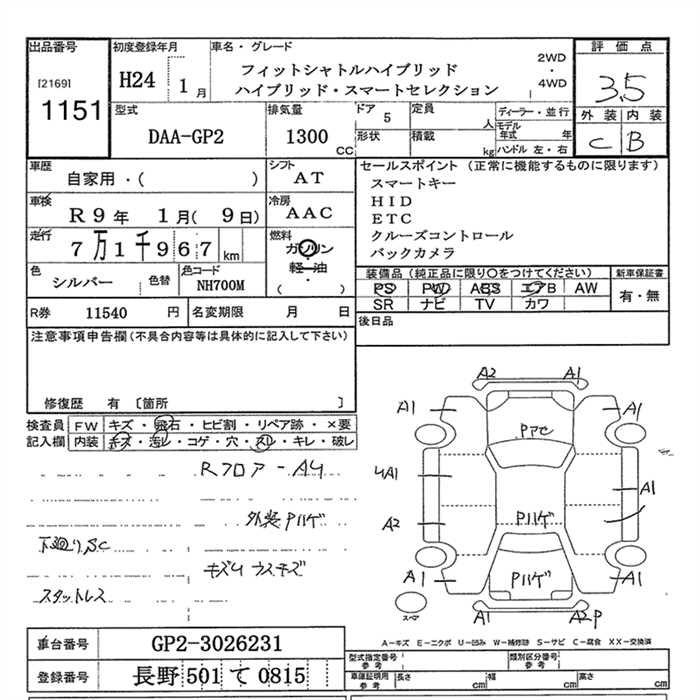 出品番号
[2169]
1151
初度登録年月
H24 1月
車名・グレード
フィットシャトルハイブリッド
ハイブリッド・スマートセレクション
2WD
・
4WD
評価点
3.5
外装 内装
C B
型式
DAA-GP2
排気量
1300 CC
ドア
5
形状
定員
人
積載
kg
ディーラー・並行
モデル年式 年
ハンドル 左・右
車歴
自家用・( )
シフト
AT
車検
R9年 1月( 9日)
冷房
AAC
走行
7万1千967 km
燃料
ガソリン
軽・油
・
( )
色
シルバー
色替
色コード
NH700M
R券 11540 円
名変期限 月 日
セールスポイント(正常に機能するものに限ります)
スマートキー
HID
ETC
クルーズコントロール
バックカメラ
装備品(純正品に限り○をつけてください)
PS PW ABS エアB AW
SR ナビ TV カワ
新車保証書
有・無
後日品
注意事項申告欄(不具合内容等は具体的に記入して下さい)
修復歴 有 〔箇所 〕
検査員記入欄
FW キズ・飛石・ヒビ割・リペア跡・×要
内装 キズ・汚レ・コゲ・穴・スレ・キレ・破レ
Rフロア-A4
外装Pハゲ
下廻りSC
キズU ウスキズ
スタットレス
A2 A1
A1 A1
Pアセ
4A1
A1
A2
Pハゲ
Pハゲ
A1 A1
スペア
A1 A2P
A-キズ E-エクボ U-凹み W-補修跡 S-サビ C-腐食 XX-交換済
車台番号 GP2-3026231
登録番号 長野 501 て 0815
型式指定番号
参考
類別区分番号
参考
車庫証明用
参考
長さ cm
幅 cm
高さ cm